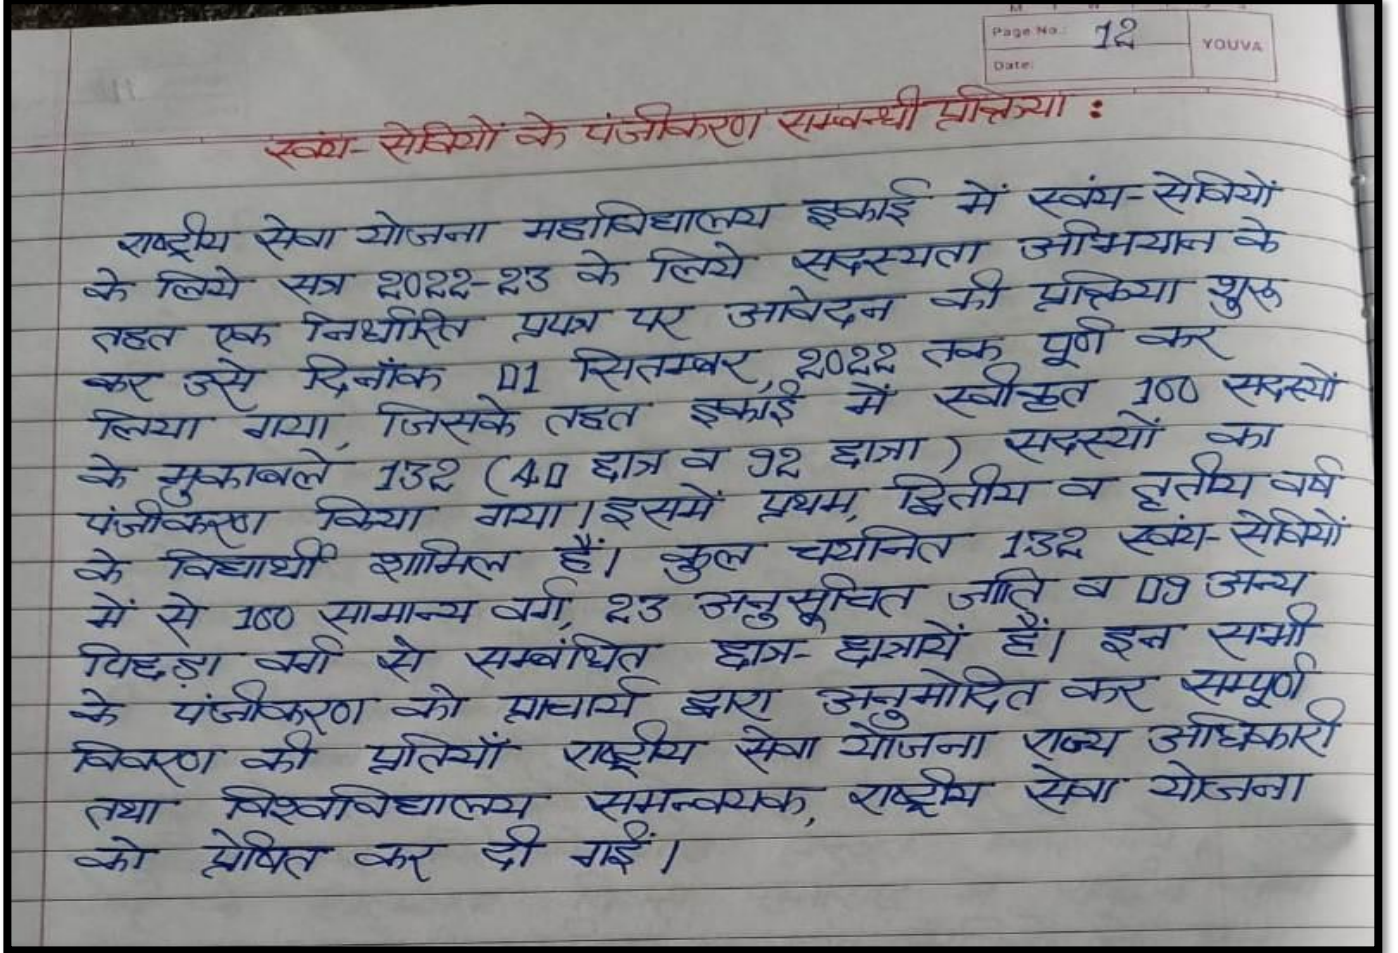 Page No.: 12
YOUVA
Date:
स्वंय-सेवियों के पंजीकरण सम्बन्धी प्रक्रिया :
राष्ट्रीय सेवा योजना महाविद्यालय इकाई में स्वंय-सेवियों
के लिये सत्र 2022-23 के लिये सदस्यता अभियान के
तहत एक निर्धारित प्रपत्र पर आवेदन की प्रक्रिया शुरू
कर उसे दिनाँक 01 सितम्बर, 2022 तक पूर्ण कर
लिया गया, जिसके तहत इकाई में स्वीकृत 100 सदस्यों
के मुकाबले 132 (40 छात्र व 92 छात्रा) सदस्यों का
पंजीकरण किया गया। इसमें प्रथम, द्वितीय व तृतीय वर्ष
के विद्यार्थी शामिल हैं। कुल चयनित 132 स्वंय-सेवियों
में से 100 सामान्य वर्ग, 23 अनुसूचित जाति व 09 अन्य
पिछड़ा वर्ग से सम्बंधित छात्र-छात्रायें हैं। इन सभी
के पंजीकरण को प्राचार्य द्वारा अनुमोदित कर सम्पूर्ण
विवरण की प्रतियाँ राष्ट्रीय सेवा योजना राज्य अधिकारी
तथा विश्वविद्यालय समन्वयक, राष्ट्रीय सेवा योजना
को प्रेषित कर दी गई।